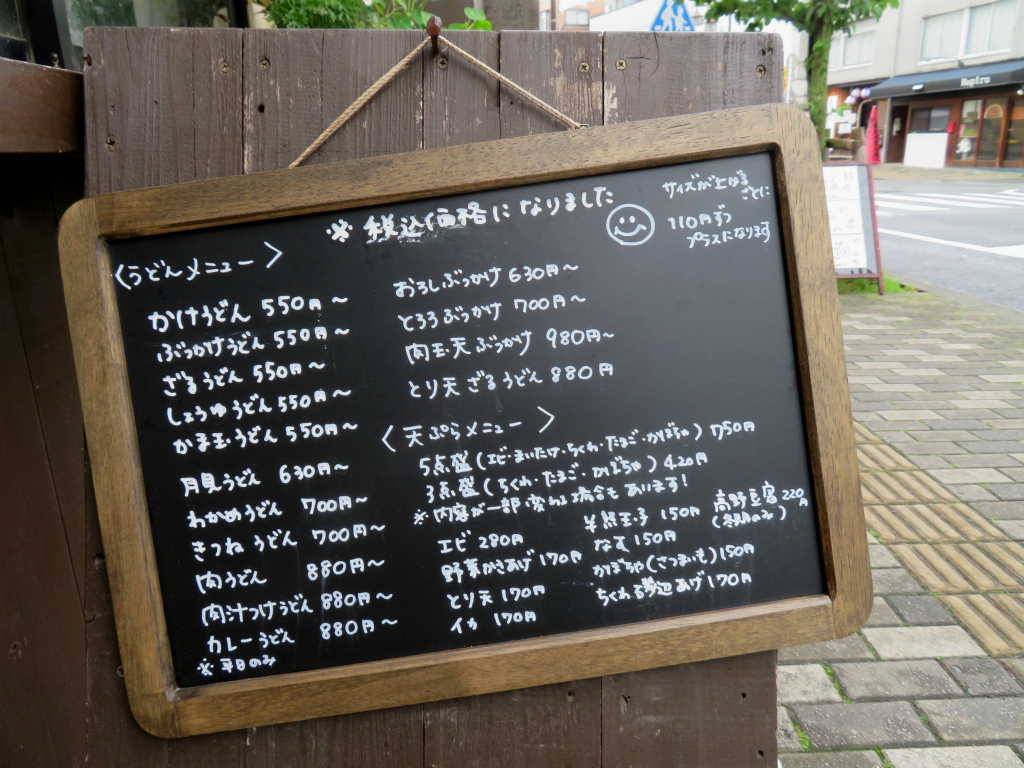 ※ 税込価格になりました
サイズが上がる
ごとに
110円ずつ
プラスになります
〈うどんメニュー〉
かけうどん 550円～
ぶっかけうどん 550円～
ざるうどん 550円～
しょうゆうどん 550円～
かま玉うどん 550円～
月見うどん 630円～
わかめうどん 700円～
きつねうどん 700円～
肉うどん 880円～
肉汁つけうどん 880円～
カレーうどん 880円～
※ 平日のみ
おろしぶっかけ 630円～
とろろぶっかけ 700円～
肉玉天ぶっかけ 980円～
とり天ざるうどん 880円
〈天ぷらメニュー〉
5点盛(エビ・まいたけ・ちくわ・たまご・かぼちゃ) 750円
3点盛(ちくわ・たまご・かぼちゃ) 420円
※ 内容が一部変わる場合もあります!
エビ 280円
野菜かきあげ 170円
とり天 170円
イカ 170円
半熟玉子 150円
なす 150円
かぼちゃ(さつまいも) 150円
ちくわ磯辺あげ 170円
高野豆腐 220円
Hapiru